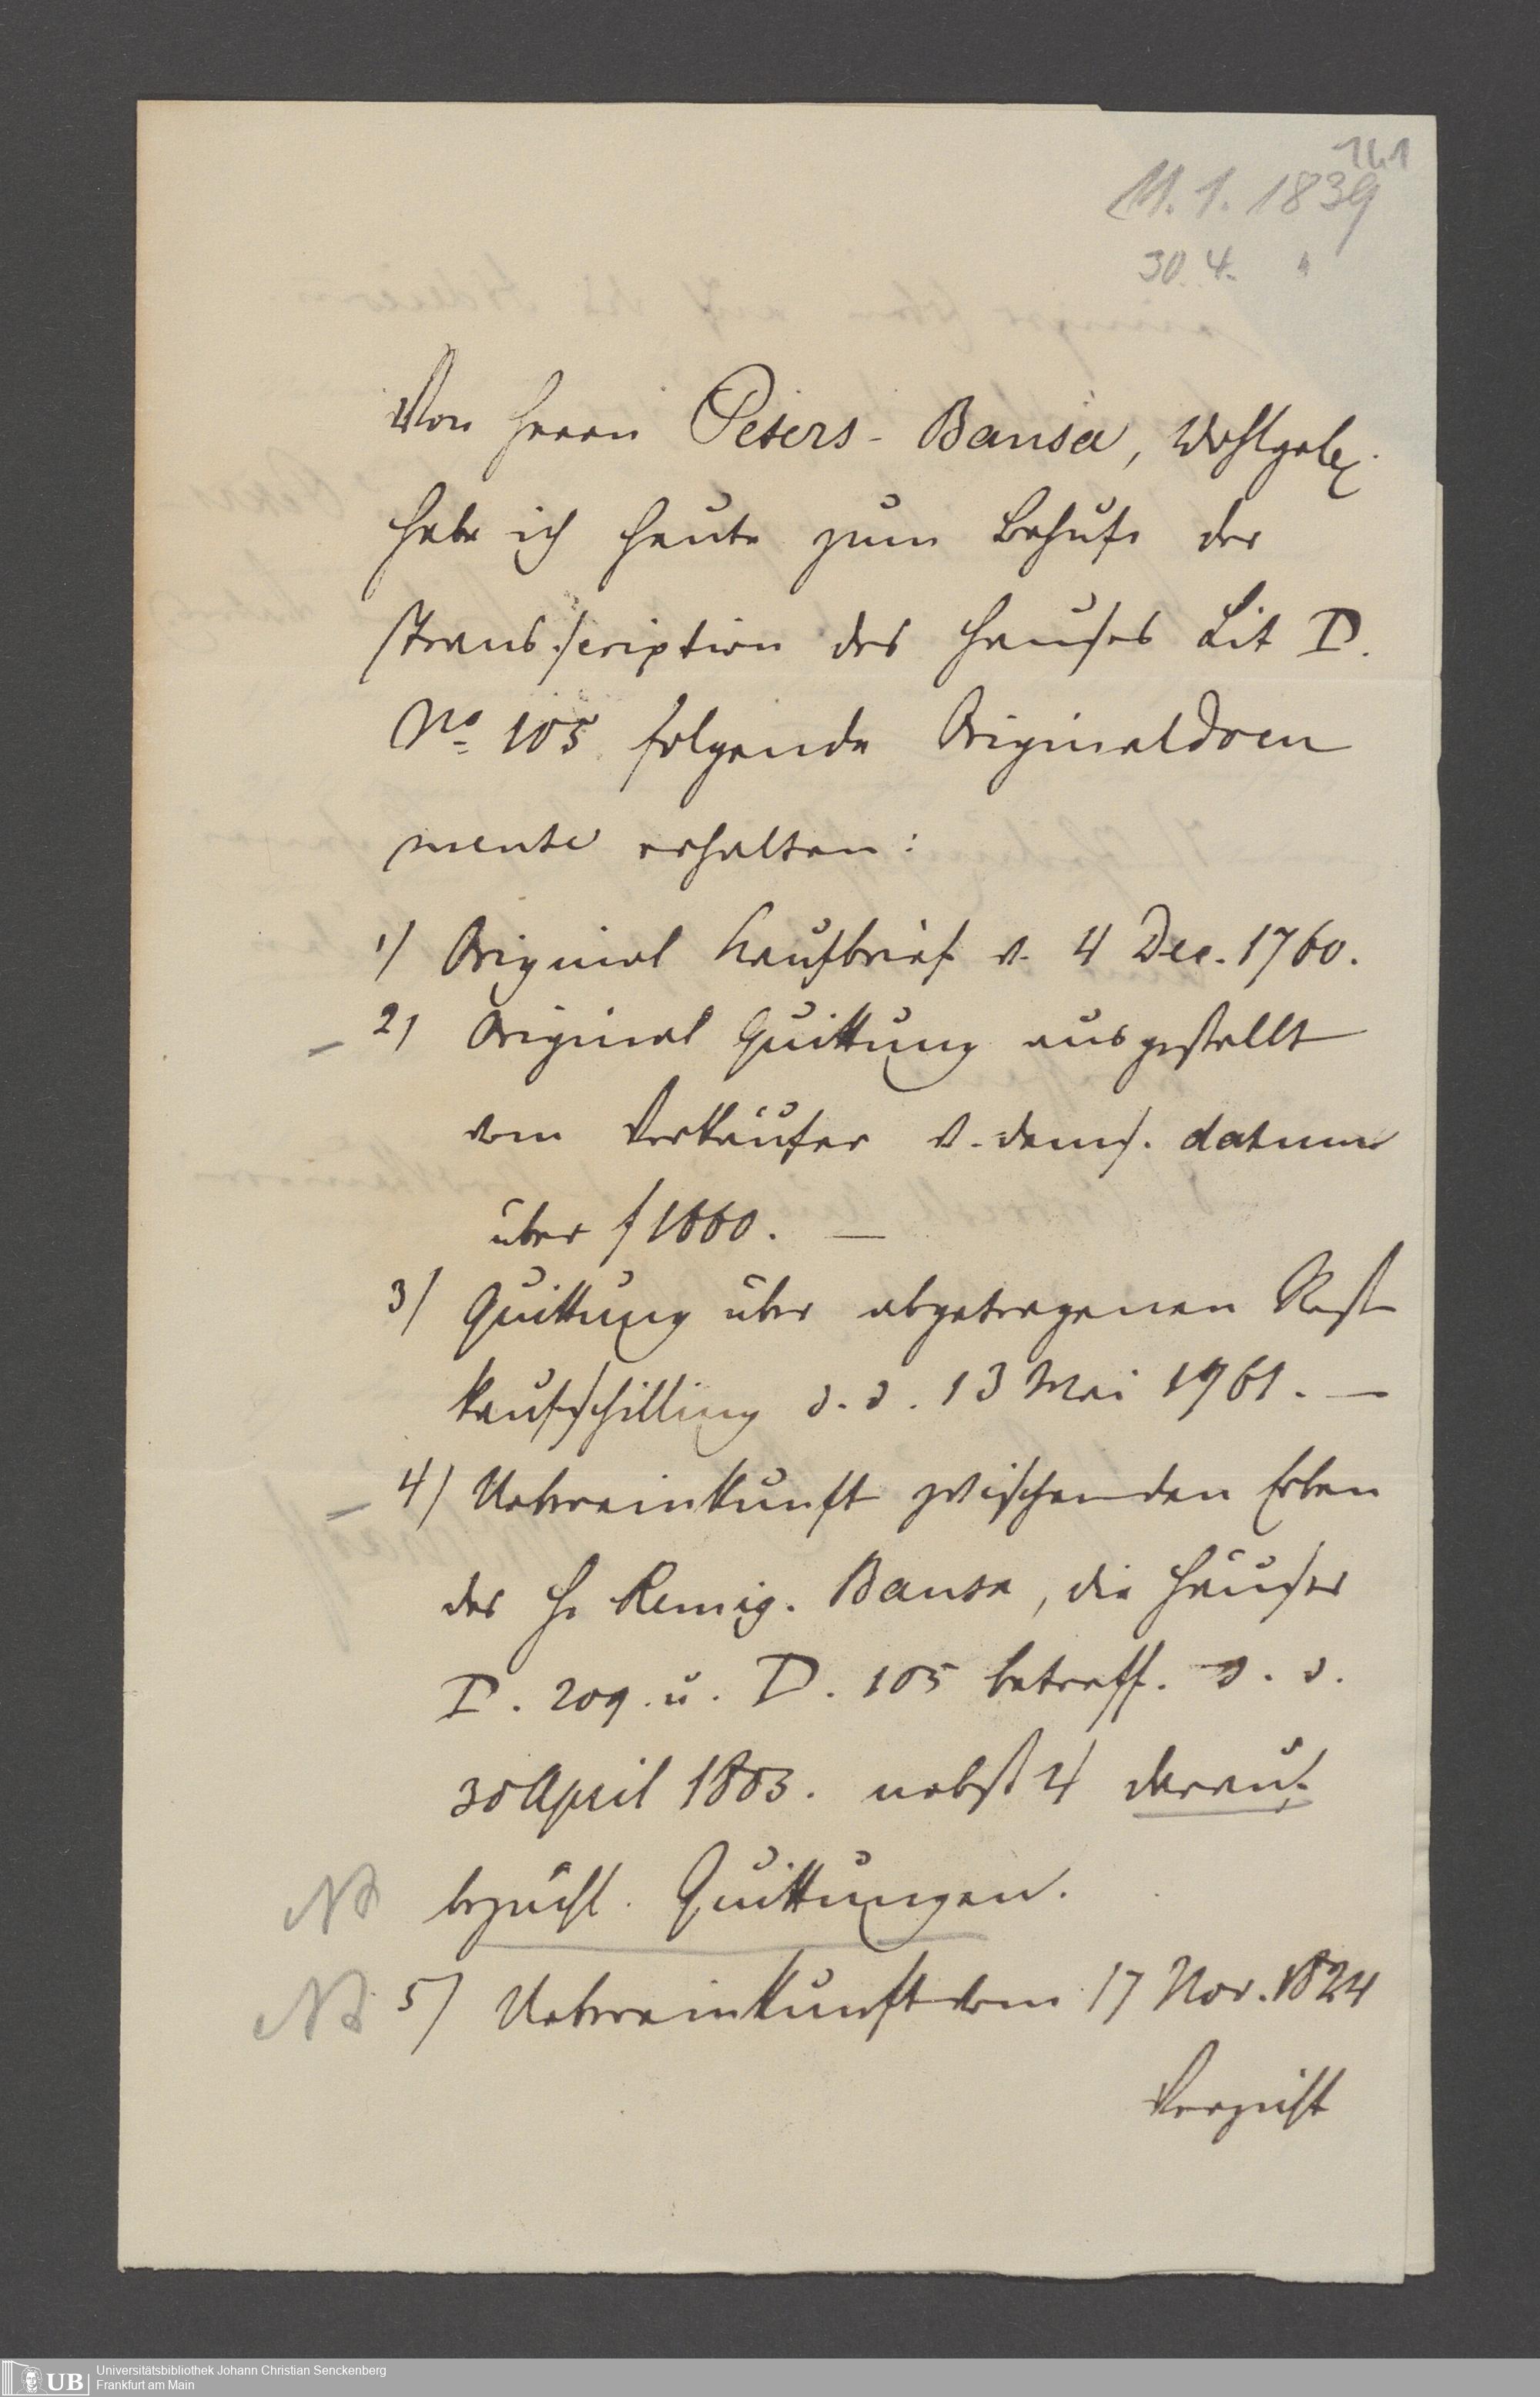 141
11. 1. 1839
30. 4. "
Von Herrn Peters-Bansa, Wohlgeb.
habe ich heute zum Behufe der
Transscription des Hauses Lit D.
No 105 folgende Originaldocu
mente erhalten:
1) Original Kaufbrief v. 4 Dec. 1760.
2) Original Quittung ausgestellt
vom Verkäufer v. dems. datum
über f 1660. —
3) Quittung über abgetragenen Rest
kaufschilling d. d. 13 Mai 1761. —
4) Uebereinkunft zwischen den Erben
des H. Remig. Bansa, die Häuser
D. 209. u. D. 105 betreff. d. d.
30 April 1803. nebst 4 darauf
NB bezühl. Quittungen.
NB 5) Uebereinkunft vom 17 Nov. 1824
Verzicht
UB Universitätsbibliothek Johann Christian Senckenberg
Frankfurt am Main